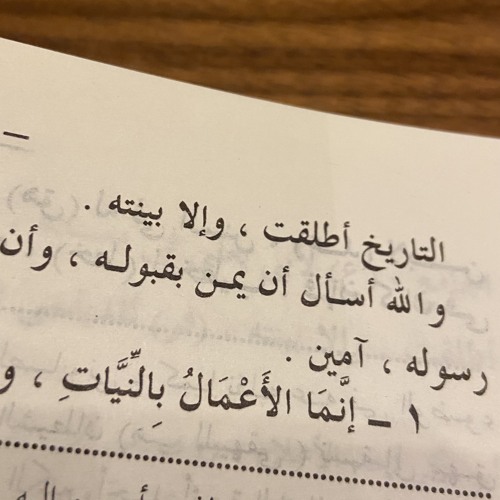 التاريخ أطلقت ، وإلا بينته .
والله أسأل أن يمن بقبوله ، وأن
رسوله ، آمين .
١ ــ إنَّمَا الأَعْمَالُ بِالنِّيَّاتِ ، و